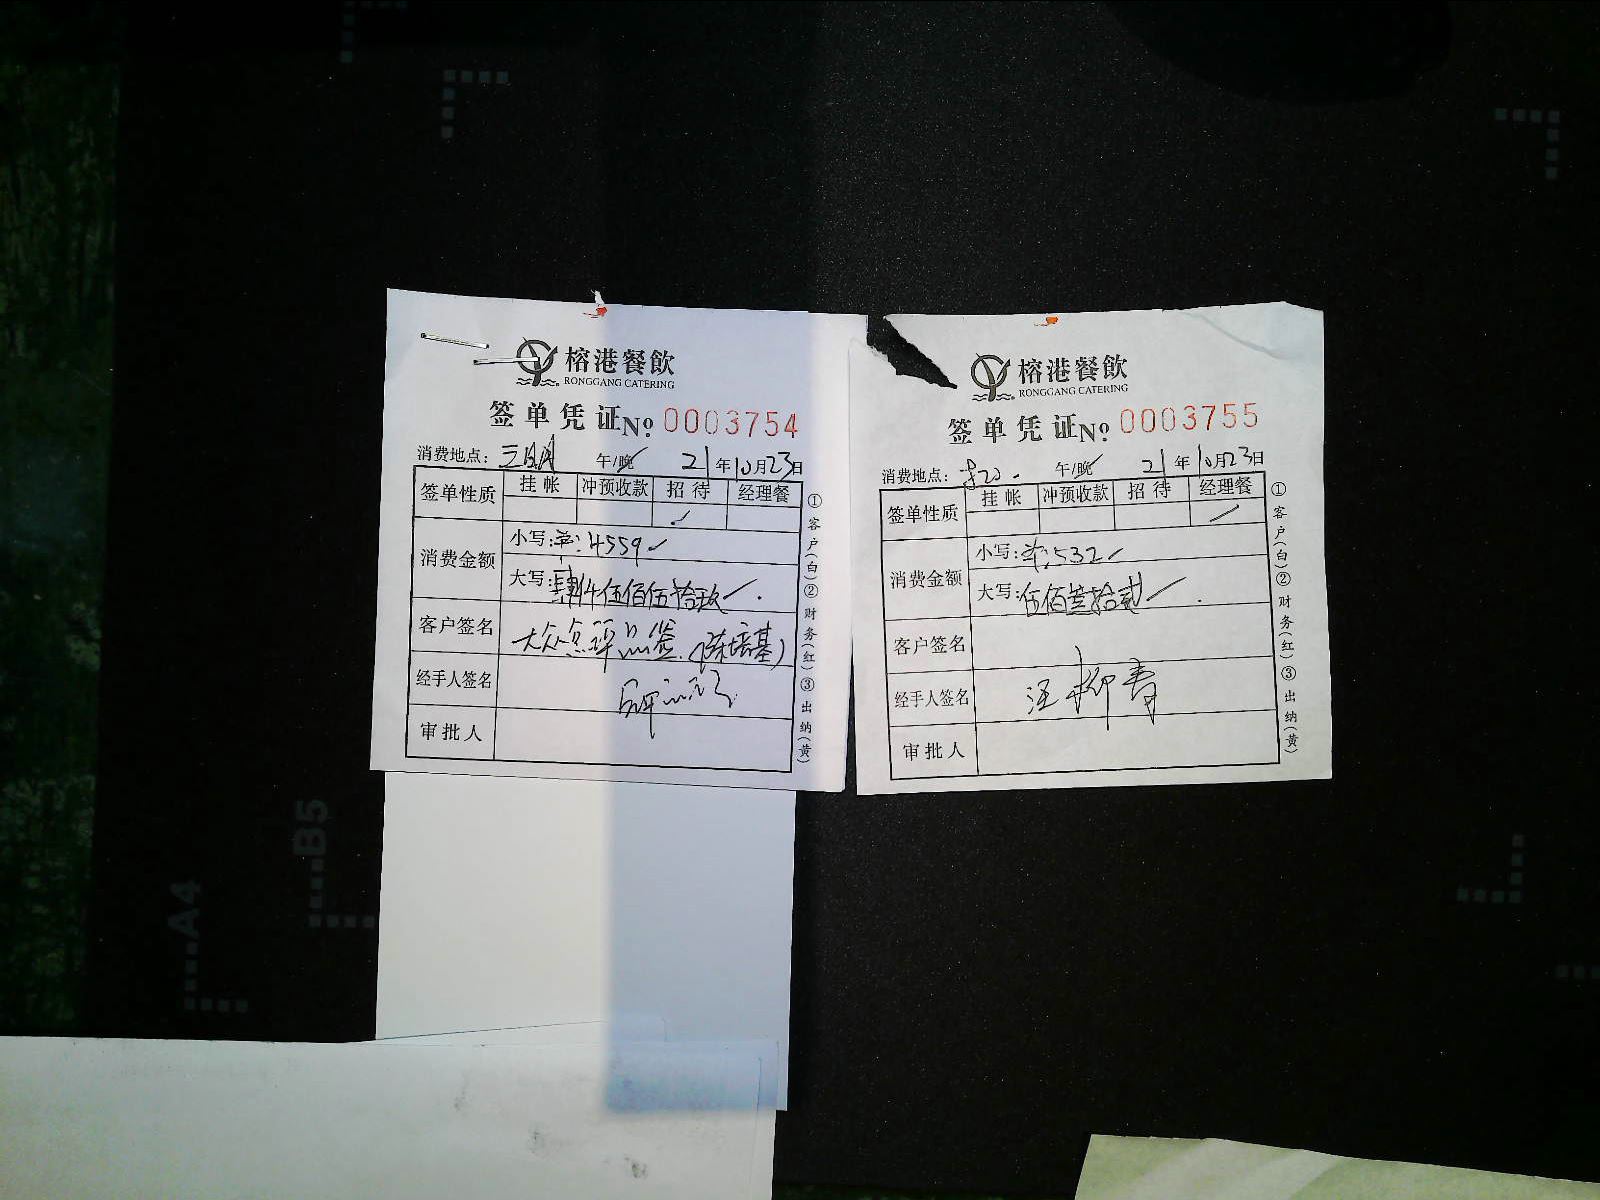 榕港餐飲
RONGGANG CATERING
签单凭证 No 0003754
消费地点: 午/晚 21年10月23日
签单性质 挂帐 冲预收款 招待 经理餐
消费金额 小写: 4559
大写: 肆仟伍佰伍拾玖
客户签名 大众点评 签 (陈培基)
经手人签名
审批人
①客户(白)②财务(红)③出纳(黄)
榕港餐飲
RONGGANG CATERING
签单凭证 No 0003755
消费地点: 午/晚 21年10月23日
签单性质 挂帐 冲预收款 招待 经理餐
消费金额 小写: 532
大写: 伍佰叁拾贰
客户签名
经手人签名 汪柳青
审批人
①客户(白)②财务(红)③出纳(黄)
B5
A4